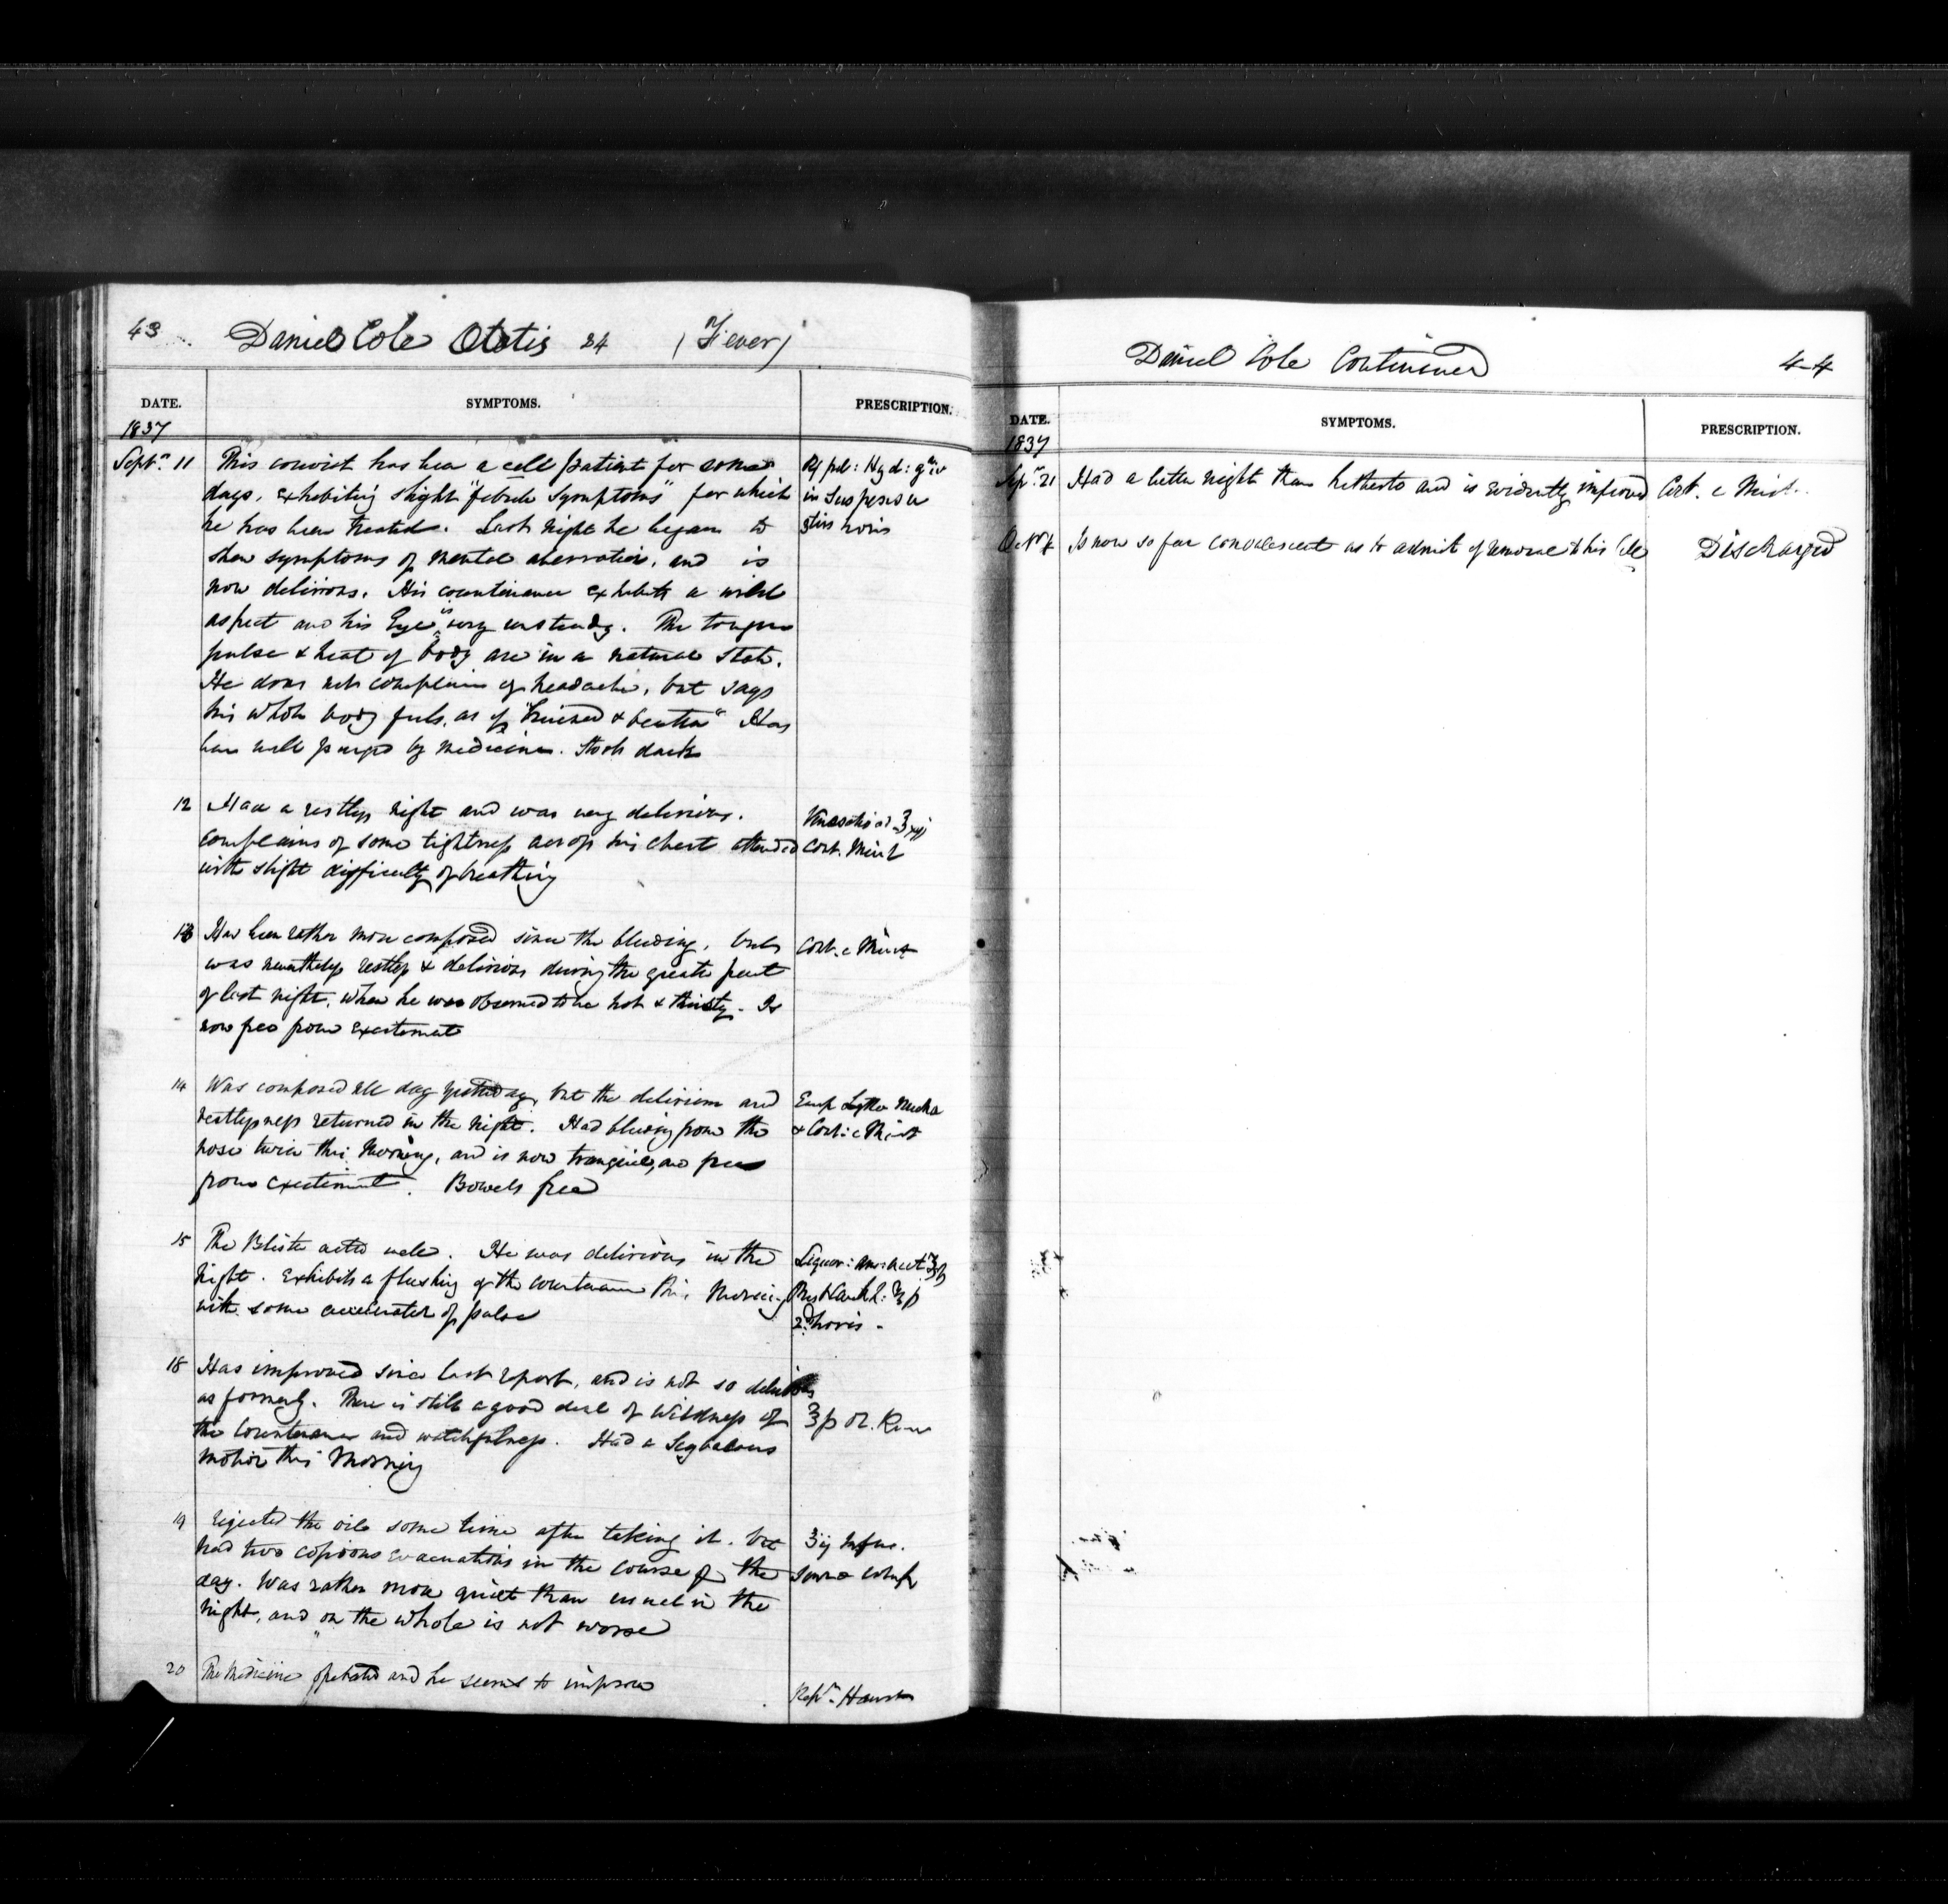 43
Daniel Cole Ætatis 24 (Fever)
DATE. SYMPTOMS. PRESCRIPTION.
1837
Septr. 11 This convict has been a cell patient for some
days, exhibiting slight "febrile symptoms" for which
he has been treated. Last night he began to
shew symptoms of mental aberration, and is
now delirious. His countenance exhibits a wild
aspect and his Eye is very unsteady. The tongue
pulse & heat of body are in a natural state.
He does not complain of headache, but says
his whole body feels, as if "bruised & beaten" Has
been well purged by medicine. Stools dark
pil: Hyd: griv
in Suspensu
horis
12 Had a restless night and was very delirious.
complains of some tightness across his chest attended
with slight difficulty of breathing
Cont. Mist
13 Has been rather more composed since the bleeding, but
was nevertheless restless & delirious during the greater part
of last night, when he was observed to be hot & thirsty. Is
now free from excitement
Cont. c Mist
14 Was composed all day yesterday, but the delirium and
restlessness returned in the night. Had bleeding from the
nose twice this Morning, and is now tranquil, and free
from excitement. Bowels free
Emp Lyttae Nucha
& Cont: c Mist
15 The Blister acted well. He was delirious in the
night. Exhibits a flushing of the countenance this Morning
with some acceleration of pulse
Liquor: am: acet
horis
18 Has improved since last report, and is not so delirious
as formerly. There is still a good deal of wildness of
the Countenance and watchfulness. Had a Scybalous
motion this Morning
ol. Ricini
19 rejected the oil some time after taking it. but
had two copious evacuations in the course of the
day. Was rather more quiet than usual in the
night, and on the whole is not worse
ʒij Infus.
Sennae Comp
20 The Medicine operated and he seems to improve
Rept. Haust
Daniel Cole Continued
44
DATE. SYMPTOMS. PRESCRIPTION.
1837
Sepr. 21 Had a better night than hitherto and is evidently improved Cont. c Mist.
Octr 4 Is now so far convalescent as to admit of removal to his Cell Discharged